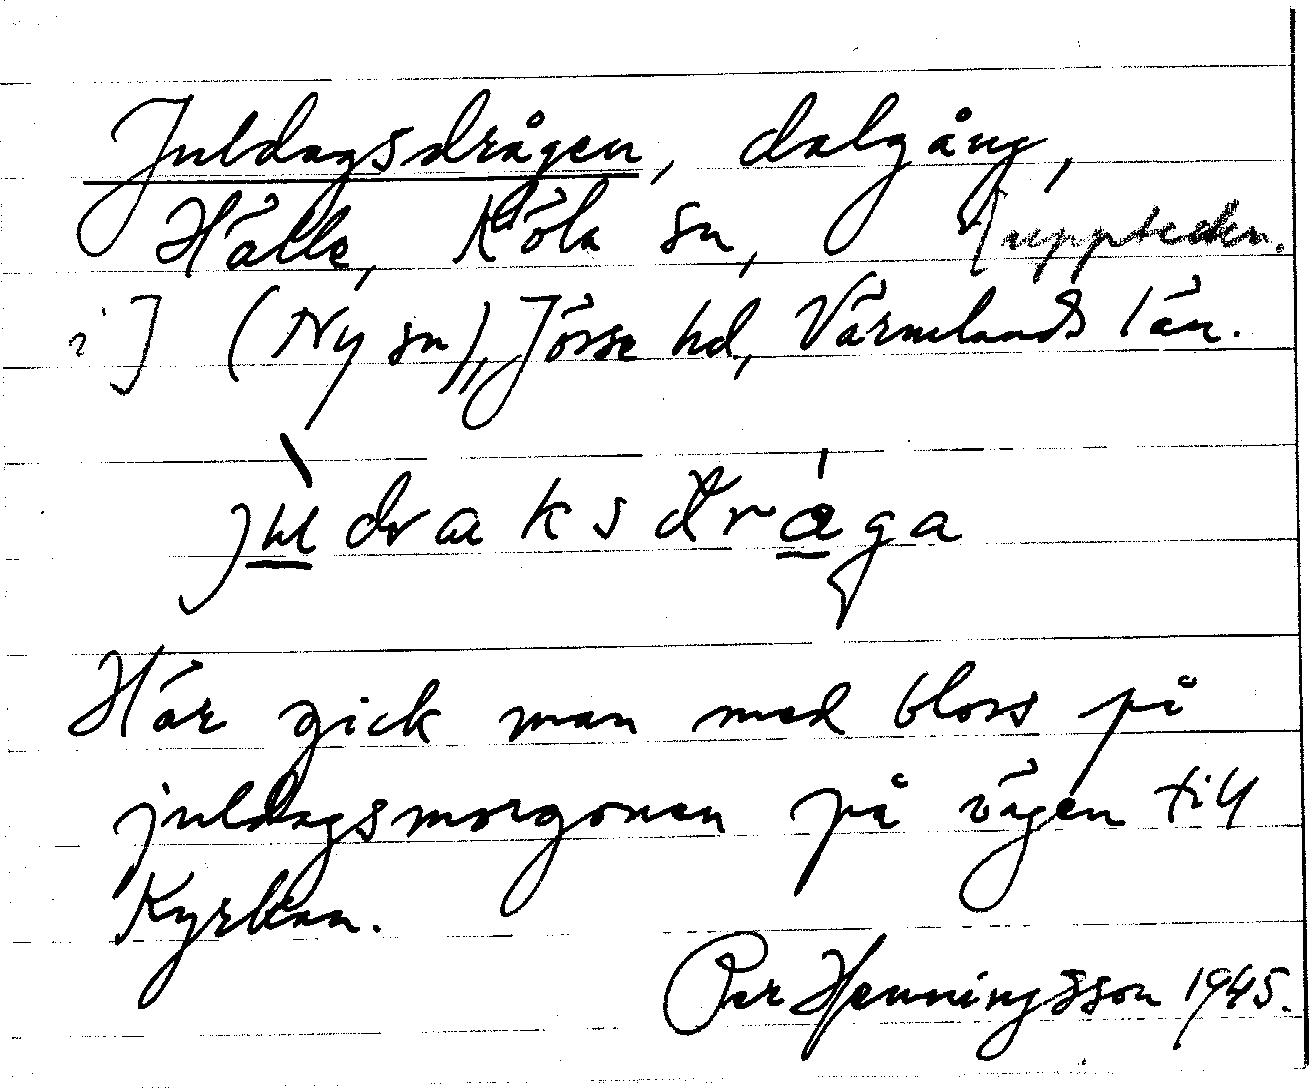 Juldagsdrågen, dalgång,
Hälle, Köla sn, [uppteckn.
i] (Ny sn), Jösse hd, Värmlands län.
Här gick man med bloss på
juldagsmorgonen på vägen till
Kyrkan.
Per Henningsson 1945.